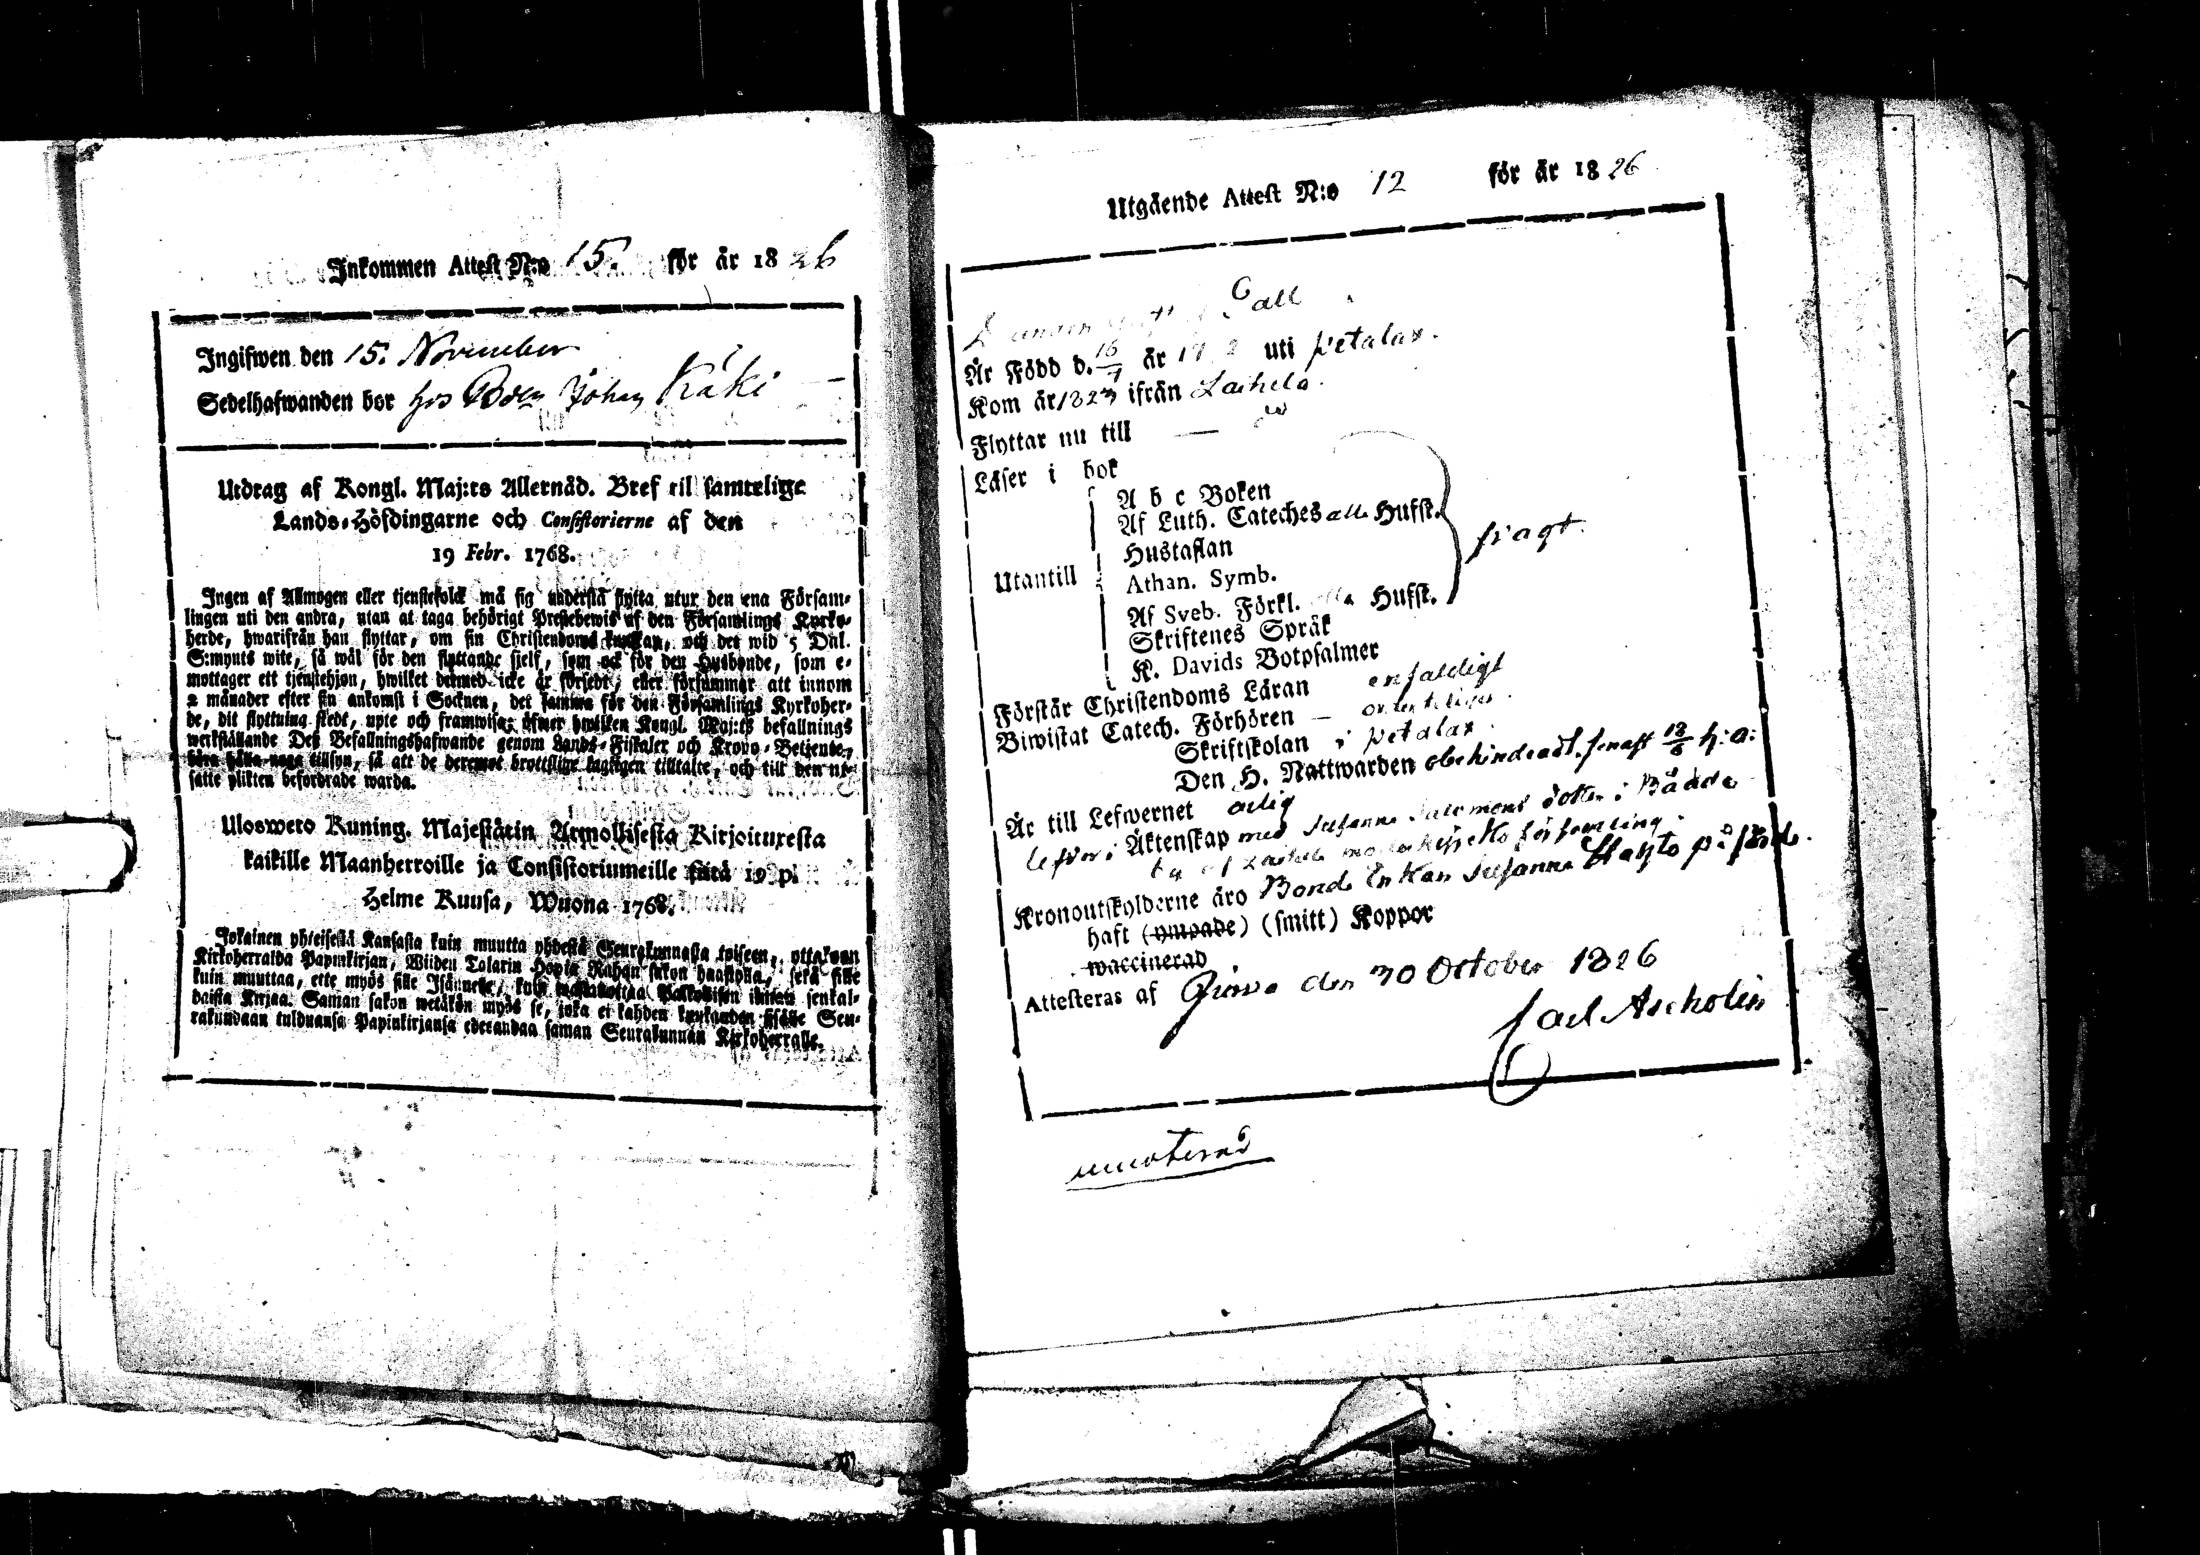 Inkommen Attest N:o 15. för år 1826
Ingifwen den 15. November
Sedelhafwanden bor hos Johan Käki
Utdrag af Kongl. Maj:ts Allernåd. Bref til samtelige
Lands-Höfdingarne och Consistorierne af den
19 Febr. 1768.
Ingen af Allmogen eller tjenstefolck må sig understå flytta utur den ena Försam-
lingen uti den andra, utan at taga behörigt Prestebewis af den Församlings Kyrko-
herde, hwarifrån han flyttar, om sin Christendoms kunskap, och det wid 5 Dal.
S:mynts wite, så wäl för den flyttande sjelf, som ock för den Husbonde, som e-
mottager ett tjenstehjon, hwilket dermed icke är försedt, eller försummar att innom
2 månader efter sin ankomst i Socknen, det samma för den Församlings Kyrkoher-
de, dit flyttning skedt, upte och framwisa; öfwer hwilken Kongl. Maj:ts befallnings
werkställande Deß Befallningshafwande genom Lands-Fiskaler och Krono-Betjente,
böra hålla noga tillsyn, så att de deremot brottslige lagligen tilltalte, och till den ut-
satte plikten befordrade warda.
Uloswero Kuning. Majestätin Armollisesta Kirjoituxesta
kaikille Maanherroille ja Consistoriumeille siitä 19 p.
Helme Kuusa, Wuona 1768.
Jokainen yhteisestä Kansasta kuin muutta yhdestä Seurakunnasta toiseen, ottakoon
Kirkoherralda Papinkirjan, Wiiden Talarin Hopia Rahan sakon haastolla, sekä sille
kuin muuttaa, ette myös sille Isännelle, kuin Palkollisen ilman senkal-
daista Kirjaa. Saman sakon wetäkön myös se, joka ei kahden kuukauden sisälle Seu-
rakundaan tulduansa Papinkirjansa edesandaa saman Seurakunnan Kirkoherralle.
Utgående Attest N:o 12 för år 1826
Gall
Är Född d. 16/ år 17 2 uti Petalax.
Kom år 1823 ifrån Laihela.
Flyttar nu till —
Läser i bok
A b c Boken
Af Luth. Cateches alla Hufst.
Hustaflan
Utantill Athan. Symb.
Af Sveb. Förkl. alla Hufst.
Skriftenes Språk
K. Davids Botpsalmer
Förstår Christendoms Läran enfaldigt
Biwistat Catech. Förhören — ordenteligen.
Skriftskolan i Petalax.
Den H. Nattwarden obehindradt. senast 18/6 h: a:
Är till Lefwernet ärlig
lefver i Äktenskap med Susanna Salomons dotter i
församling.
Kronoutskylderne äro Bonde Enkan Susanna på
haft (ympade) (smitt) Koppor
waccinerad
Attesteras af den 30 October 1826
Carl Ascholin